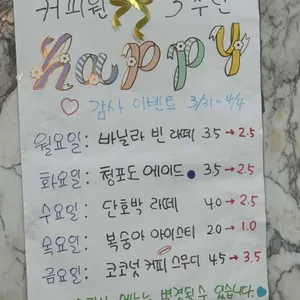 커피월 3주년
happy
감사 이벤트 3/31~4/4
월요일: 바닐라 빈 라떼 3.5→2.5
화요일: 청포도 에이드 3.5→2.5
수요일: 단호박 라떼 4.0→2.5
목요일: 복숭아 아이스티 2.0→1.0
금요일: 코코넛 커피 스무디 4.5→3.5
변경될 수 있습니다